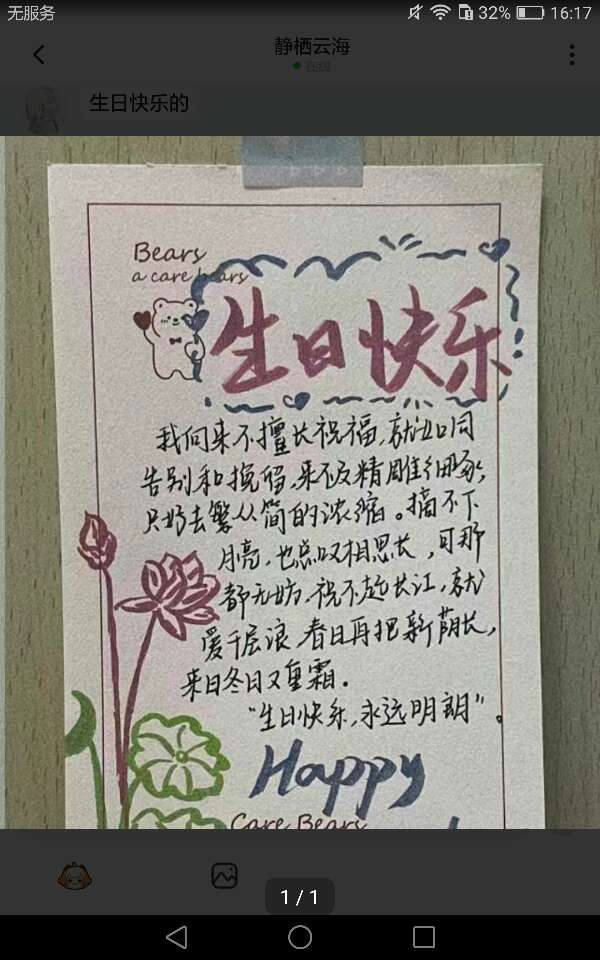 无服务
32%
16:17
静栖云海
在线
生日快乐的
Bears
a care bears
生日快乐
我向来不擅长祝福,就如同
告别和挽留,来不及精雕细琢,
只好去繁从简的浓缩。摘不下
月亮,也总叹相思长,可那
都无妨,祝不起长江,就
爱千层浪 春日再把新荫长,
来日冬日又重霜.
“生日快乐,永远明朗”。
Happy
Care Bears
1 / 1